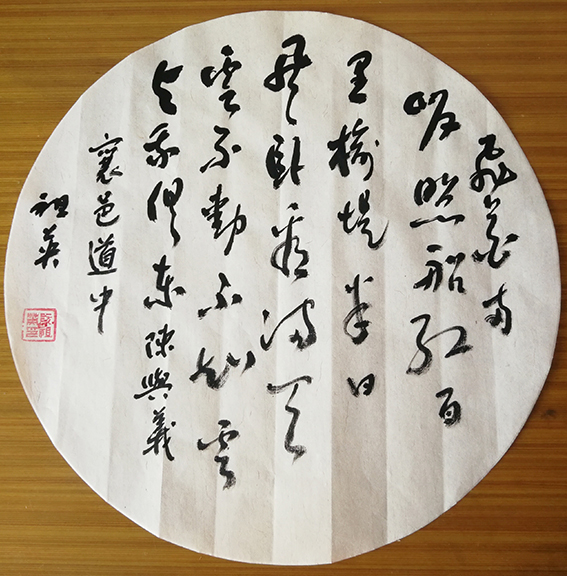 飛花両
岸照船紅百
里榆堤半日
風卧看滿天
雲不動不知雲
与我俱東陳與義
襄邑道中
祖英